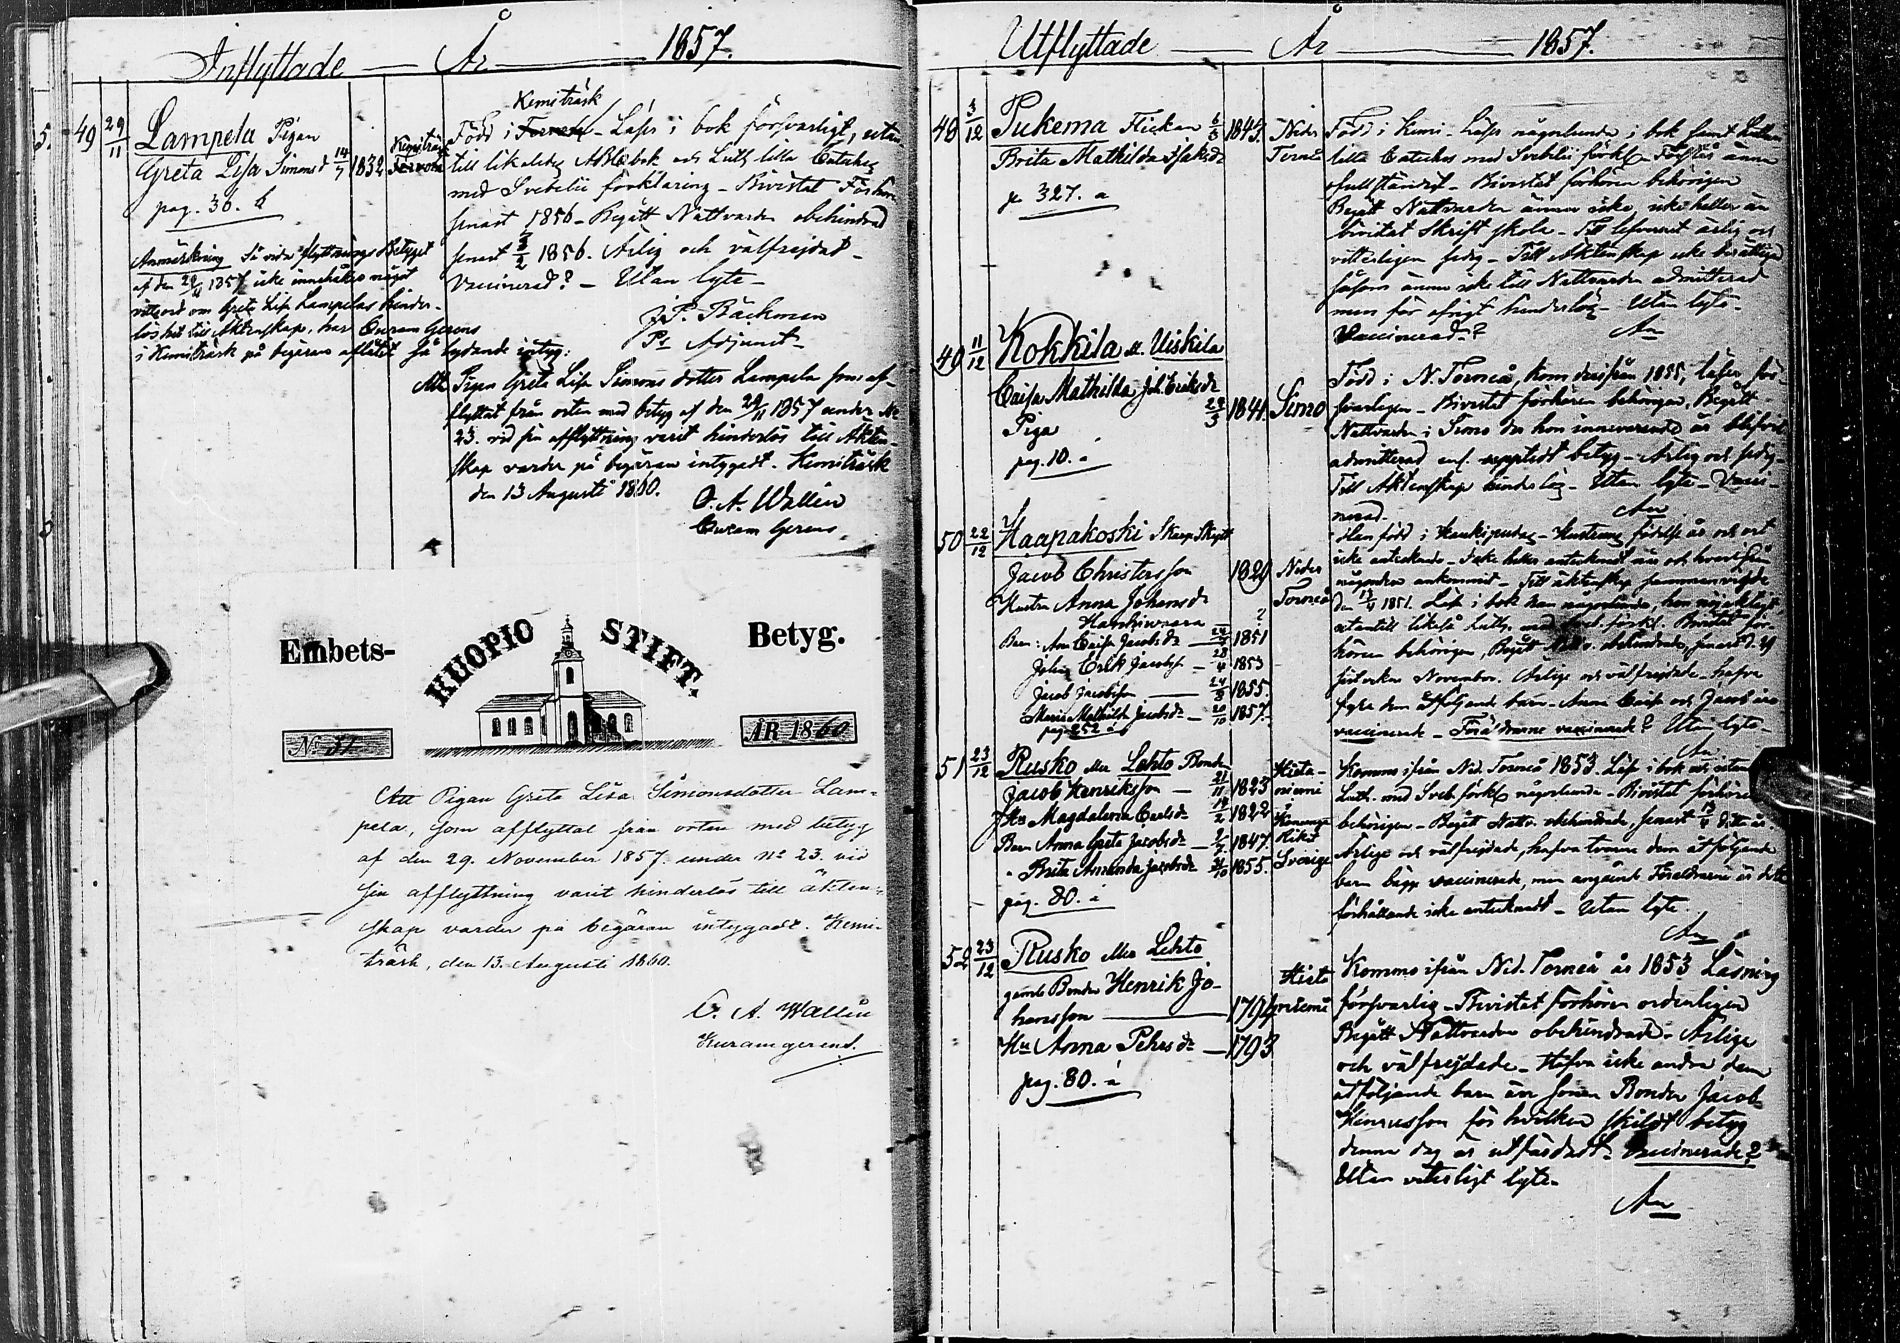 Inflyttade År 1857.
5.
49 29/11 Lampela Pigan
Greta Lisa Simonsd 14/7 1832 Kemiträsk Torneå
pag. 36. b
Kemiträsk
Född i Torneå - Läser i bok försvarligt, utan-
till likaledes ABCbok och Luth. lilla Catches
med Svebelii förklaring - Bivistat Förhör
senast 1856 - Begått Nattvarden obehindrad
senast 1856. Ärlig och välfrejdat -
Vaccinerad? - Utan lyte -
J. P. Bäckman
Ps Adjunct -
Anmärkning Så vida flyttnings Betyget
af den 29/11 1857 icke innehåller något
vittsord om Greta Lisa Lampelas hinder-
löshet till Äktenskap, har Curam Gerens
i Kemiträsk på begäran aflåtit så lydande intyg:
Att Pigan Greta Lisa Simons dotter Lampela som af-
flyttat från orten med betyg af den 29/11 1857 under No
23. vid sin afflyttning varit hinderlös till Äkten-
skap varder på begäran intygadt. Kemiträsk
den 13 Augusti 1860.
O. A. Wallin
Curam Gerens
Embets- KUOPIO STIFT. Betyg.
No 31. ÅR 1860
Att Pigan Greta Lisa Simonsdotter Lam-
pela, som afflyttat från orten med betyg
af den 29. November 1857. under No 23. vid
sin afflyttning varit hinderlös till äkten-
skap varder på begäran intygadt. Kemi-
träsk, den 13. Augusti 1860.
O. A. Wallin
Kuramgerens.
Utflyttade År 1857.
48 3/12 Pukema Flickan 1843. Neder
Brita Mathilda Isaksdr Torneå
p 327. a
Född i Kemi - Läser någorlunda i bok samt Luthers
lilla Catches med Svebelii förkl. Förstår ännu
ofullständigt - Bivistat förhören behörigen
Begått Nattvarden ännu icke, icke heller än
bivistat Skrift skola - Till lefvernet ärlig och
vitterligen sedig - Till Äktenskap icke berättigad
såsom ännu icke till Nattvarden admitterad
men för öfrigt hinderlös - Utan lyte -
Vaccinerad?
49 11/12 Kokkila el. Uiskila
Caisa Mathilda Joh. Eriksdr
Piga 1841. Simo
pag. 10. a
Född i N. Torneå, kom derifrån 1855, läser för-
svarligen - Bivistat förhören behörigen, Begått
Nattvarden i Simo der hon innevarande år blifvit
admitterad enl. uppvist betyg - Ärlig och sedig -
Till Äktenskap hinderlös - Utan lyte - Vacci-
nerad.
50 22/12 Haapakoski
Jacob Christersson 1829 Neder
Hustru Anna Johansdr Torneå
?
Barn: Ann Caisa Jacobsdr 1851
Johan Erik Jacobss 1853
Jacob Jacobsson 1855.
Maria Mathilda Jacobsdr 20/10 1857.
pag. 252 a
Han född i Haukipudas - Hustruns födelse år och ort
icke antecknade -
- Till äktenskap sammanvigde
den 1851. Läser i bok han någorlunda, hon
Bivistat för-
hören behörigen, Begått Nattv. obehindrade, senast d. 29
sistvikne November. Ärlige och välfrejdade - hafva
fyra dem åtföljande barn - Anna Caisa och Jacob äro
vaccinerade - Föräldrarne vaccinerade? Utan lyte -
51 23/12 Rusko eller Lehto Bonden
Jacob Henriksson - 21/11 1823 Hieta-
Hu Magdalena Carlsdr 1822 niemi
Barn Anna Greta Jacobsdr - 1847. i Konunga
" Brita Amanda Jacobsdr 1855. Riket Sverige
pag. 80. a
Komne ifrån Ned. Torneå 1853. Läser i bok och utan
Luth. med Sveb. förkl. någorlunda - Bivistat förhören
behörigen - Begått Nattv. obehindrade, senast detta år.
Ärlige och välfrejdade, hafva tvenne dem åtföljande
barn bägge vaccinerade, men angående Föräldrarne är detta
förhållande icke antecknadt - Utan lyte.
52 23/12 Rusko eller Lehto
gamle Bonden Henrik Jo-
hansson 1794 Hieta
niemi
Hu Anna Pehrsdr - 1793
pag. 80. a
Komne ifrån Ned. Torneå år 1853 Läsning
försvarlig - Bivistat förhören ordentligen
Begått Nattvarden obehindrade - Ärlige
och välfrejdade - Hafva icke andra dem
åtföljande barn än sonen Bonden Jacob
Henricsson för hvilken skildt betyg
denna dag är utfärdadt - Vaccinerade?
Utan veterligt lyte -